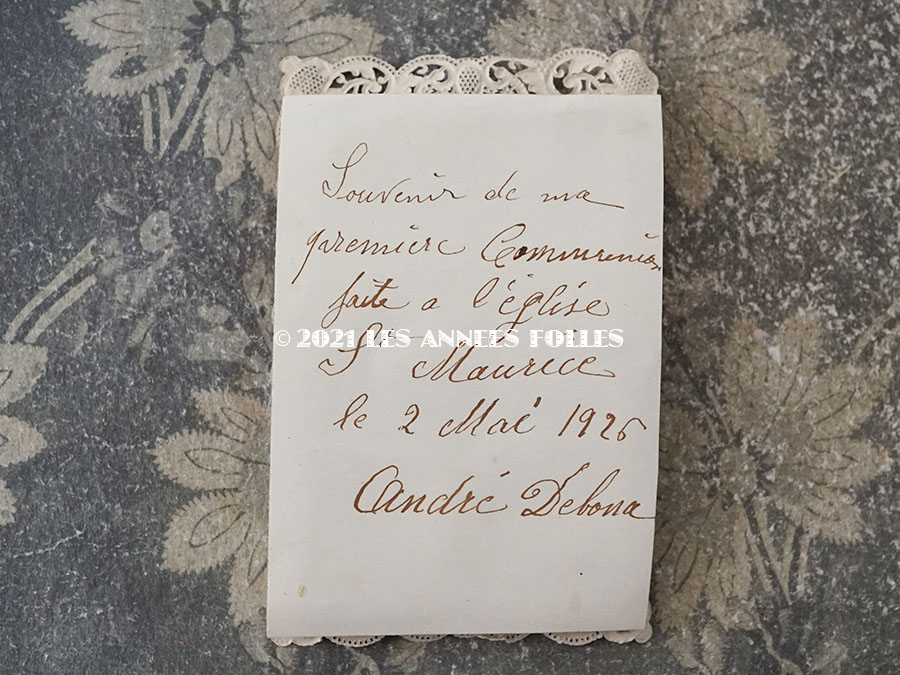 Souvenir de ma
première Communion
faite a l'église
© 2021 LES ANNEES FOLLES
St Maurice
le 2 Mai 1926
André Debona